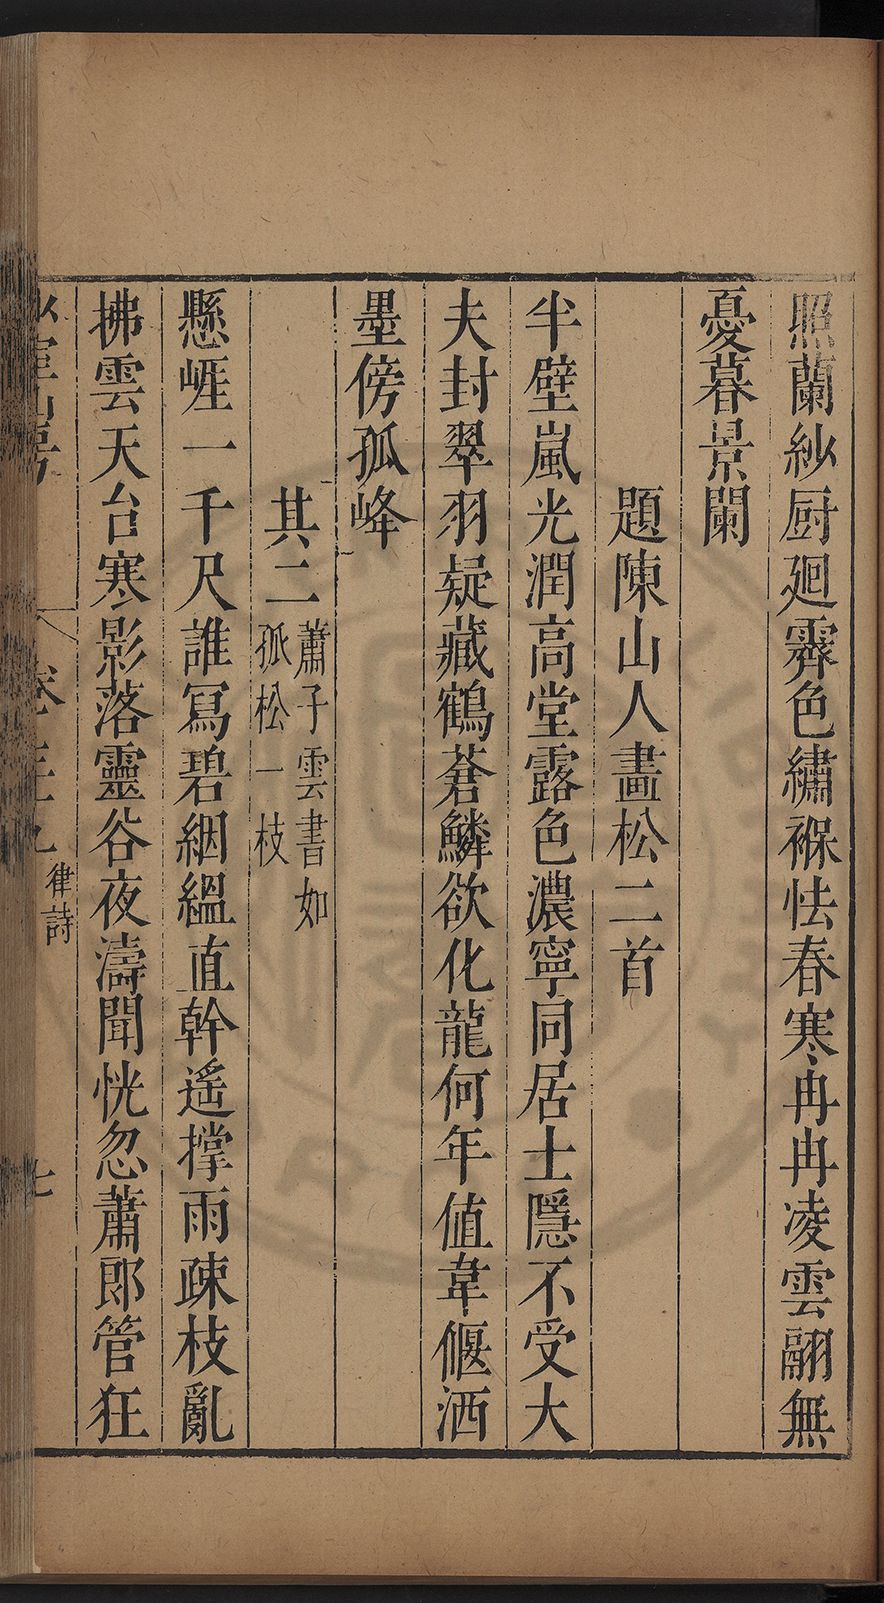 照蘭紗厨廻霽色繡褓怯春寒冉冉凌雲翮無
憂暮景闌
題陳山人畫松二首
半壁嵐光潤高堂露色濃寧同居士隱不受大
夫封翠羽疑藏鶴蒼鱗欲化龍何年值韋偃洒
墨傍孤峰
其二
蕭子雲書如
孤松一枝
懸崕一千尺誰冩碧絪縕直幹遙撑雨疎枝亂
拂雲天台寒影落靈谷夜濤聞恍忽蕭郎管狂
律詩
七